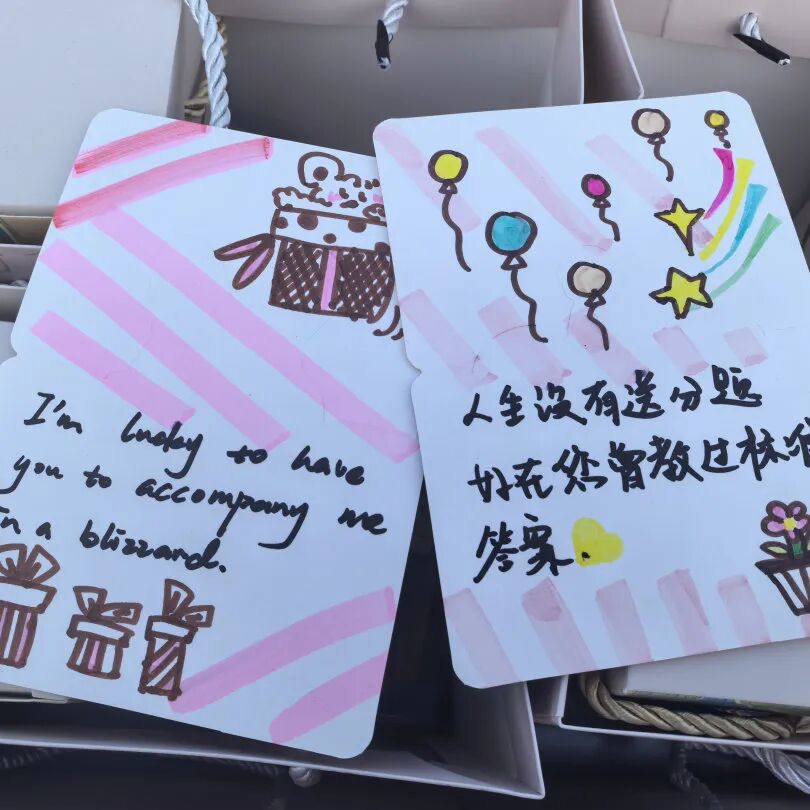 I'm lucky to have
you to accompany me
in a blizzard.
人生没有送分题
好在您曾教过标准
答案